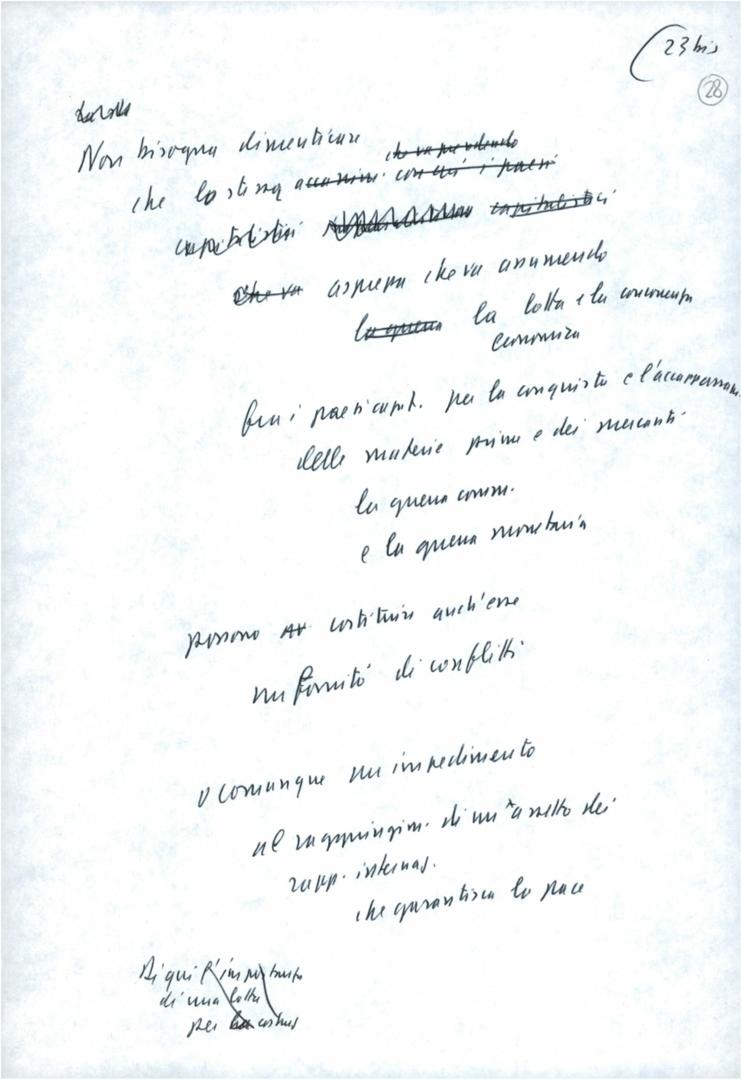 (23 bis
28
Non bisogna dimenticare
che va prendendo
che la stessa con cui i paesi
capitalistici capitalistici
che va aspra che va assumendo
la guerra la lotta e la concorrenza
economica
fra i paesi capit. per la conquista e l'accaparram.
delle materie prime e dei mercati
la guerra comm.
e la guerra monetaria
possono costituire anch'esse
di conflitti
o comunque un impedimento
al raggiungim. di un assetto dei
rapp. internaz.
che garantisca la pace
Di qui l'importanza
di una lotta
per